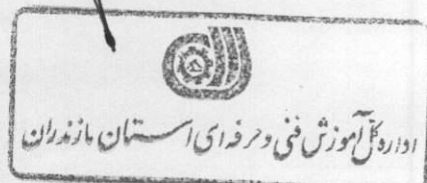 اداره کل آموزش فنی و حرفه ای استان مازندران